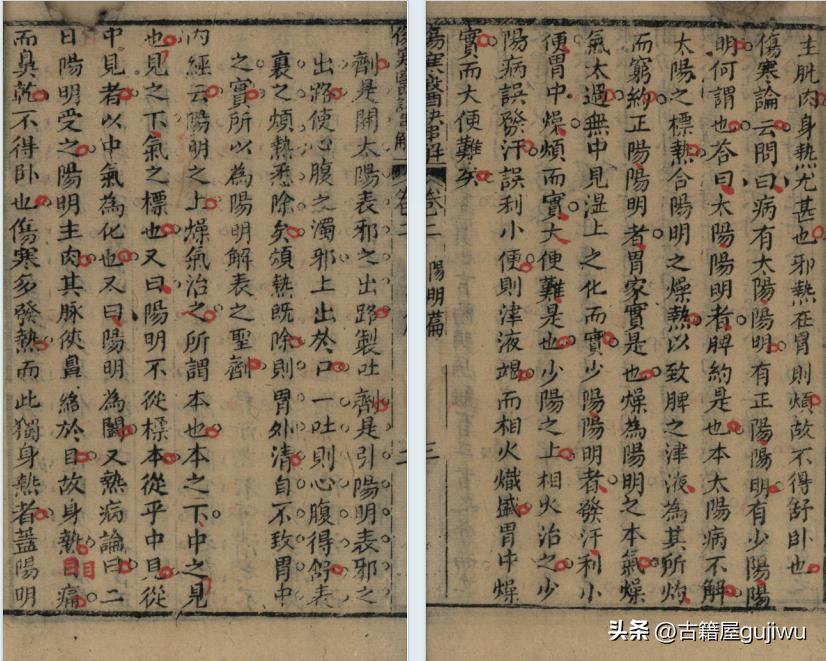 傷寒醫訣串解 卷二 二
劑是開太陽表邪之出路製吐劑是引陽明表邪之
出路使心腹之濁邪上出於口一吐則心腹得舒表
裏之煩熱悉除矣煩熱既除則胃外清自不致胃中
之實所以為陽明解表之聖劑
內經云陽明之上燥氣治之所謂本也本之下中之見
也見之下氣之標也又曰陽明不從標本從乎中見從
中見者以中氣為化也又曰陽明為闔又熱病論曰二
日陽明受之陽明主肉其脉俠鼻絡於目故身熱目痛
而鼻乾不得臥也傷寒多發熱而此獨身熱者蓋陽明
主肌肉身熱尤甚也邪熱在胃則煩故不得舒臥也
傷寒論云問曰病有太陽陽明有正陽陽明有少陽陽
明何謂也答曰太陽陽明者脾約是也本太陽病不解
太陽之標熱合陽明之燥熱以致脾之津液為其所灼
而窮約正陽陽明者胃家實是也燥為陽明之本氣燥
氣太過無中見濕土之化而實少陽陽明者發汗利小
便胃中燥煩而實大便難是也少陽之上相火治之少
陽病誤發汗誤利小便則津液竭而相火熾盛胃中燥
實而大便難矣
傷寒醫訣串解 卷二 陽明篇 三
头条 @古籍屋gujiwu